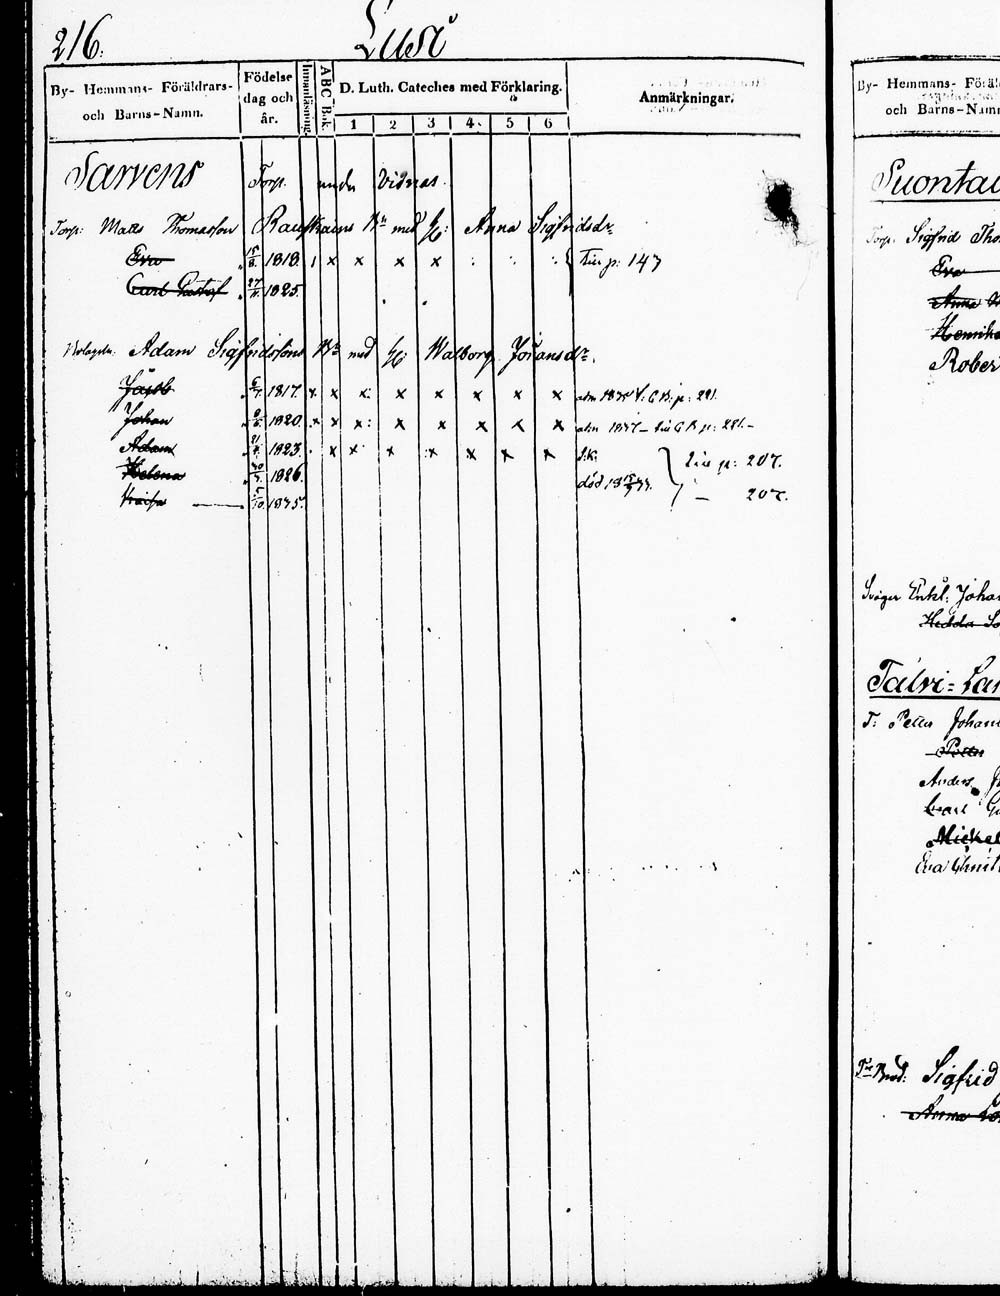 216.
Lusi
By- Hemmans- Föräldrars- och Barns-Namn.
Födelse dag och år.
Innanläsning.
ABC-Bok.
D. Luth. Cateches med Förklaring.
1 2 3 4. 5 6
Anmärkningar.
Sarvens Torp. under Vidnäs.
Torp: Matts Thomasson Bn med H: Anna Sigfridsdr
Eva 15/8. 1818. 1 x x x x p: 147
Carl Gustaf 27/11. 1825.
Adam Sigfridssons Bn med H: Walborg Johansdr.
Jacob 6/7. 1817. x. x x. x x x x x p: 221.
Johan 1820. x x x: x x x x x p: 221.-
Adam 21/ 1823. x x x x x x x
Helena 1826. död 18 p: 207.
Kaisa 5/10. 1835. — 207.
By- Hemmans- Föräl
och Barns-Namn
Suontau
Torp. Sigfrid Tho
Eva
Anna
Henrika
Rober
Svåger Enkl. Johan
Hedda So
Talvi=Lam
T: Petter Johans
Petter
Anders J
Carl Gu
Mickel
Eva Christ
Brod: Sigfrid
Anna